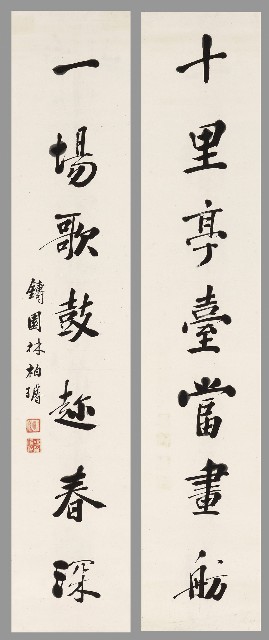 十里亭臺當畫舫
一場歌鼓趂春深
鑄園林柏璹